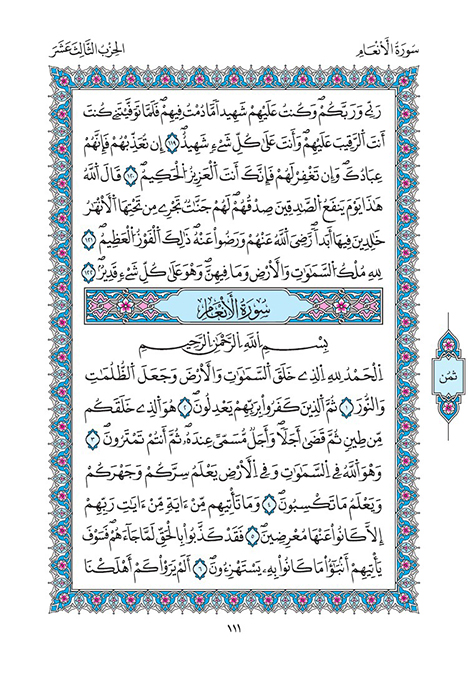 سُورَةُ الْأَنْعَامِ
الحِزْبُ الثَّالِثَ عَشَرَ
رَبِّي وَرَبَّكُمْ وَكُنتُ عَلَيْهِمْ شَهِيداً مَّا دُمْتُ فِيهِمْ فَلَمَّا تَوَفَّيْتَنِي كُنتَ
أَنتَ اَلرَّقِيبَ عَلَيْهِمْ وَأَنتَ عَلَىٰ كُلِّ شَيْءٍ شَهِيدٌ ١١٩ إِن تُعَذِّبْهُمْ فَإِنَّهُمْ
عِبَادُكَ وَإِن تَغْفِرْ لَهُمْ فَإِنَّكَ أَنتَ اَلْعَزِيزُ اُلْحَكِيمُ ١٢٠ قَالَ اَللَّهُ
هَٰذَا يَوْمَ يَنفَعُ اُلصَّٰدِقِينَ صِدْقُهُمْ لَهُمْ جَنَّٰتٌ تَجْرِي مِن تَحْتِهَا اَلْأَنْهَٰرُ
خَٰلِدِينَ فِيهَا أَبَداً رَّضِيَ اَللَّهُ عَنْهُمْ وَرَضُواْ عَنْهُ ذَٰلِكَ اَلْفَوْزُ اُلْعَظِيمُ ١٢١
لِلهِ مُلْكُ اُلسَّمَٰوَٰتِ وَالْأَرْضِ وَمَا فِيهِنَّ وَهُوَ عَلَىٰ كُلِّ شَيْءٍ قَدِيرٌ ١٢٢
سُورَةُ الْأَنْعَامِ
بِسْمِ اِللَّهِ اِلرَّحْمَٰنِ اِلرَّحِيمِ
اِلْحَمْدُ لِلهِ اِلذِي خَلَقَ اَلسَّمَٰوَٰتِ وَالْأَرْضَ وَجَعَلَ اَلظُّلُمَٰتِ
وَالنُّورَ ١ ثُمَّ اَلذِينَ كَفَرُواْ بِرَبِّهِمْ يَعْدِلُونَ ٢ هُوَ اَلذِي خَلَقَكُم
مِّن طِينٍ ثُمَّ قَضَىٰ أَجَلاً وَأَجَلٌ مُّسَمًّى عِندَهُ ثُمَّ أَنتُمْ تَمْتَرُونَ ٣
وَهُوَ اَللَّهُ فِي اِلسَّمَٰوَٰتِ وَفِي اِلْأَرْضِ يَعْلَمُ سِرَّكُمْ وَجَهْرَكُمْ
وَيَعْلَمُ مَا تَكْسِبُونَ ٤ وَمَا تَأْتِيهِم مِّنْ ءَايَةٍ مِّنْ ءَايَٰتِ رَبِّهِمْ
إِلَّا كَانُواْ عَنْهَا مُعْرِضِينَ ٥ فَقَدْ كَذَّبُواْ بِالْحَقِّ لَمَّا جَاءَهُمْ فَسَوْفَ
يَأْتِيهِمْ أَنۢبَٰٓؤُاْ مَا كَانُواْ بِهِ يَسْتَهْزِءُونَ ٦ أَلَمْ يَرَوْاْ كَمْ أَهْلَكْنَا
ثمُن
١١١